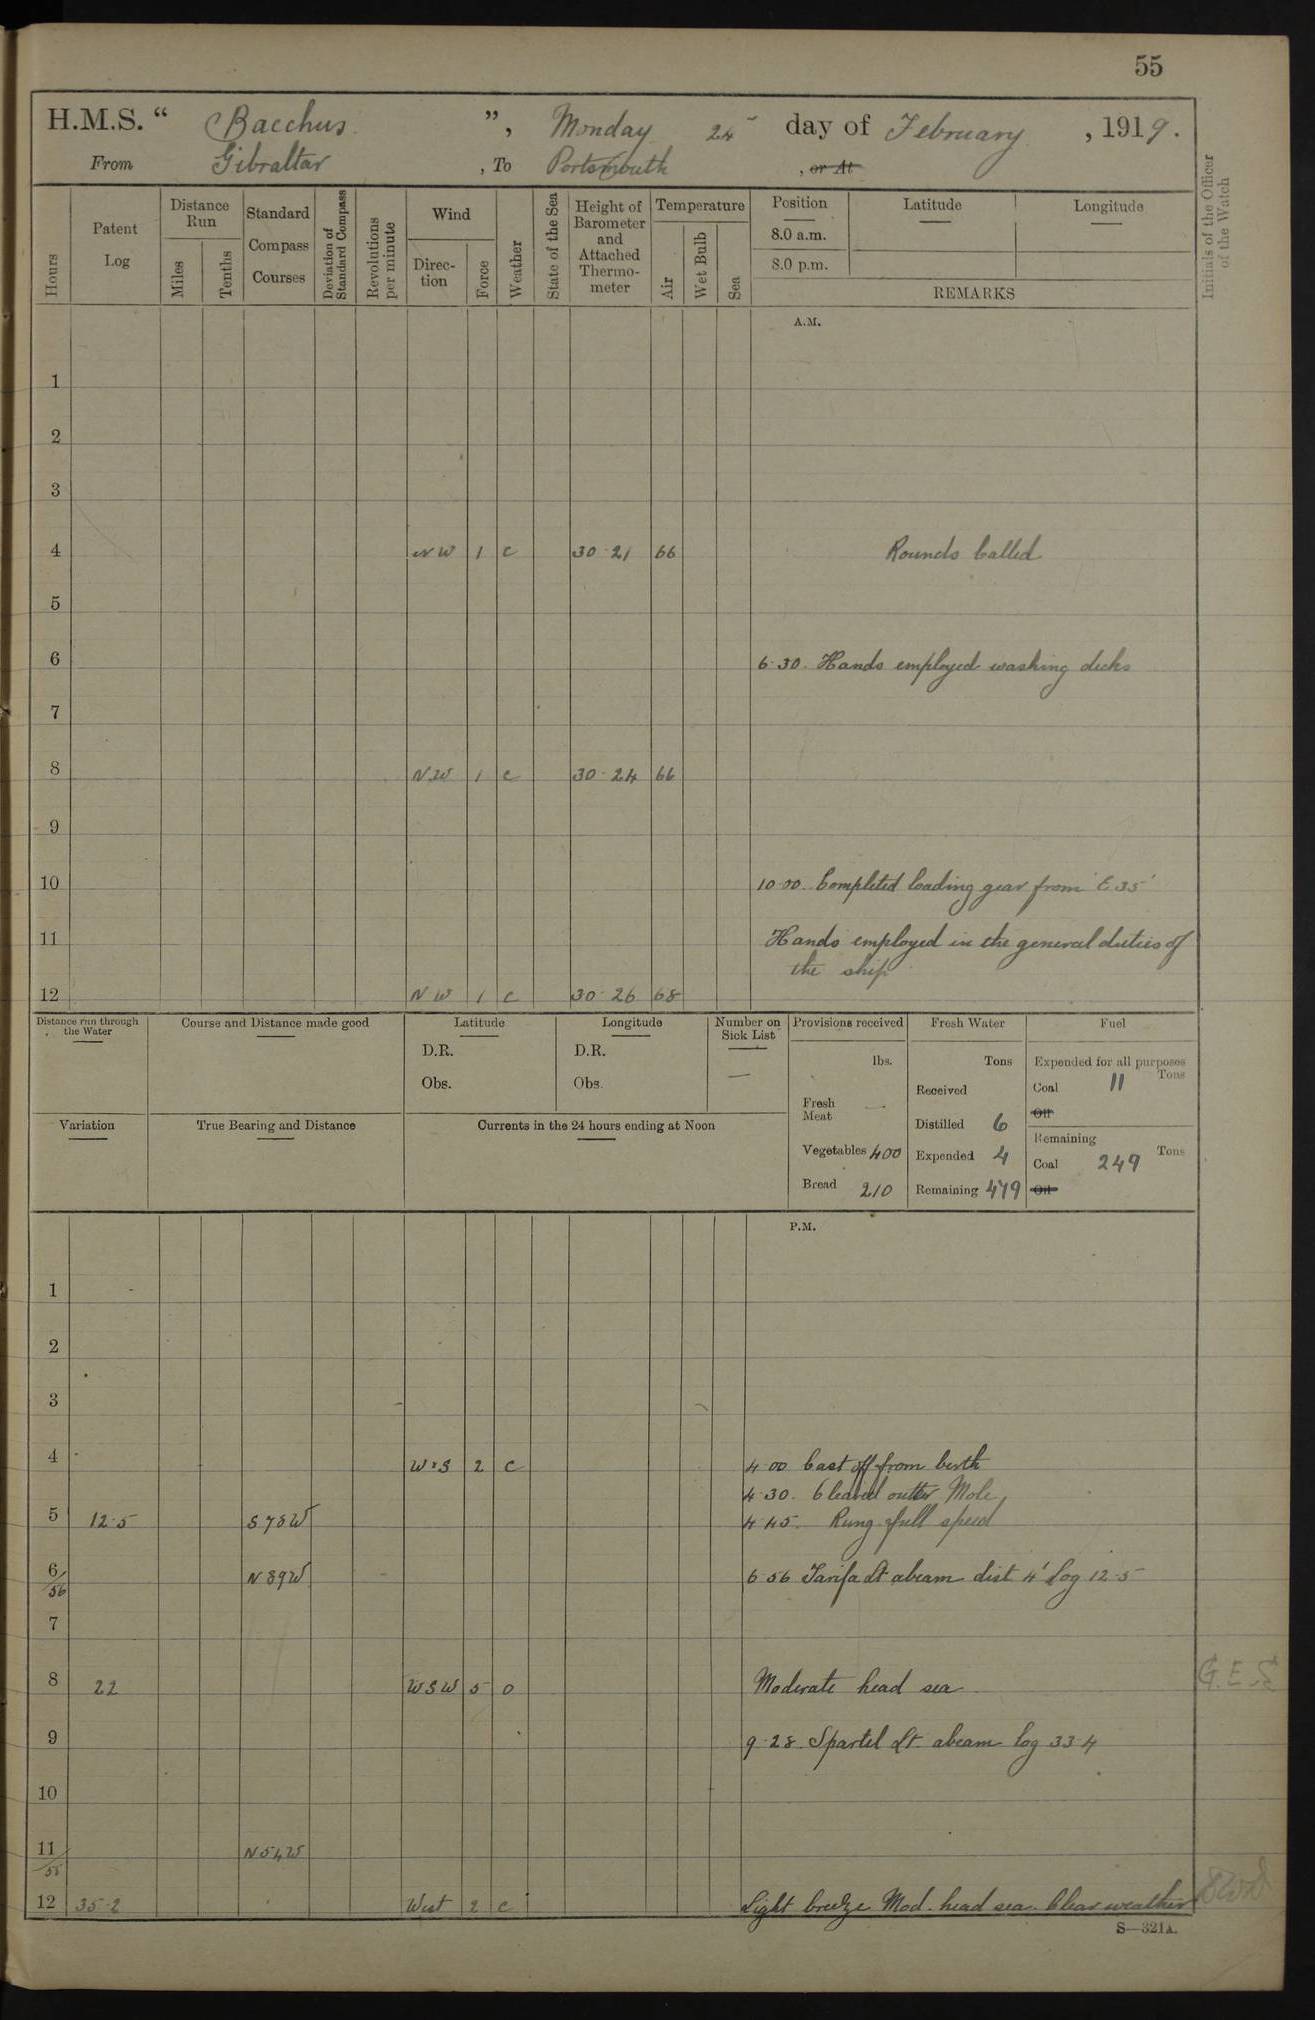 55
H.M.S. “ Bacchus ”, Monday 24 day of February , 1919.
From Gibraltar , To Portsmouth , or At
Hours
Patent Log
Distance Run
Miles
Tenths
Standard Compass Courses
Deviation of Standard Compass
Revolutions per minute
Wind
Direc-tion
Force
Weather
State of the Sea
Height of Barometer and Attached Thermo-meter
Temperature
Air
Wet Bulb
Sea
Position
8.0 a.m.
8.0 p.m.
Latitude
Longitude
REMARKS
Initials of the Officer of the Watch
A.M.
1
2
3
4 NW 1 c 30·21 66 Rounds Called
5
6 6·30. Hands employed washing decks
7
8 NW 1 c 30·24 66
9
10 10·00. Completed loading gear from 'E 35'
11 Hands employed in the general duties of
the ship
12 NW 1 c 30·26 68
Distance run through the Water
Course and Distance made good
Latitude
D.R.
Obs.
Longitude
D.R.
Obs.
Number on Sick List
—
Provisions received
lbs.
Fresh Meat —
Vegetables 400
Bread 210
Fresh Water
Tons
Received
Distilled 6
Expended 4
Remaining 479
Fuel
Expended for all purposes
Tons
Coal 11
Oil
Remaining
Tons
Coal 249
Oil
Variation
True Bearing and Distance
Currents in the 24 hours ending at Noon
P.M.
1
2
3
4 WxS 2 c 4·00 Cast off from berth
4·30. Cleared outer Mole
5 12·5 S78W 4·45. Rung full speed
6/56 N89W 6·56 Tarifa Lt abeam dist 4' log 12·5
7
8 22 WSW 5 o Moderate head sea G.E.S.
9 9·28. Spartel Lt. abeam log 33·4
10
11/55 N54W
12 35·2 West 2 c Light breeze Mod. head sea. Clear weather
S—321A.